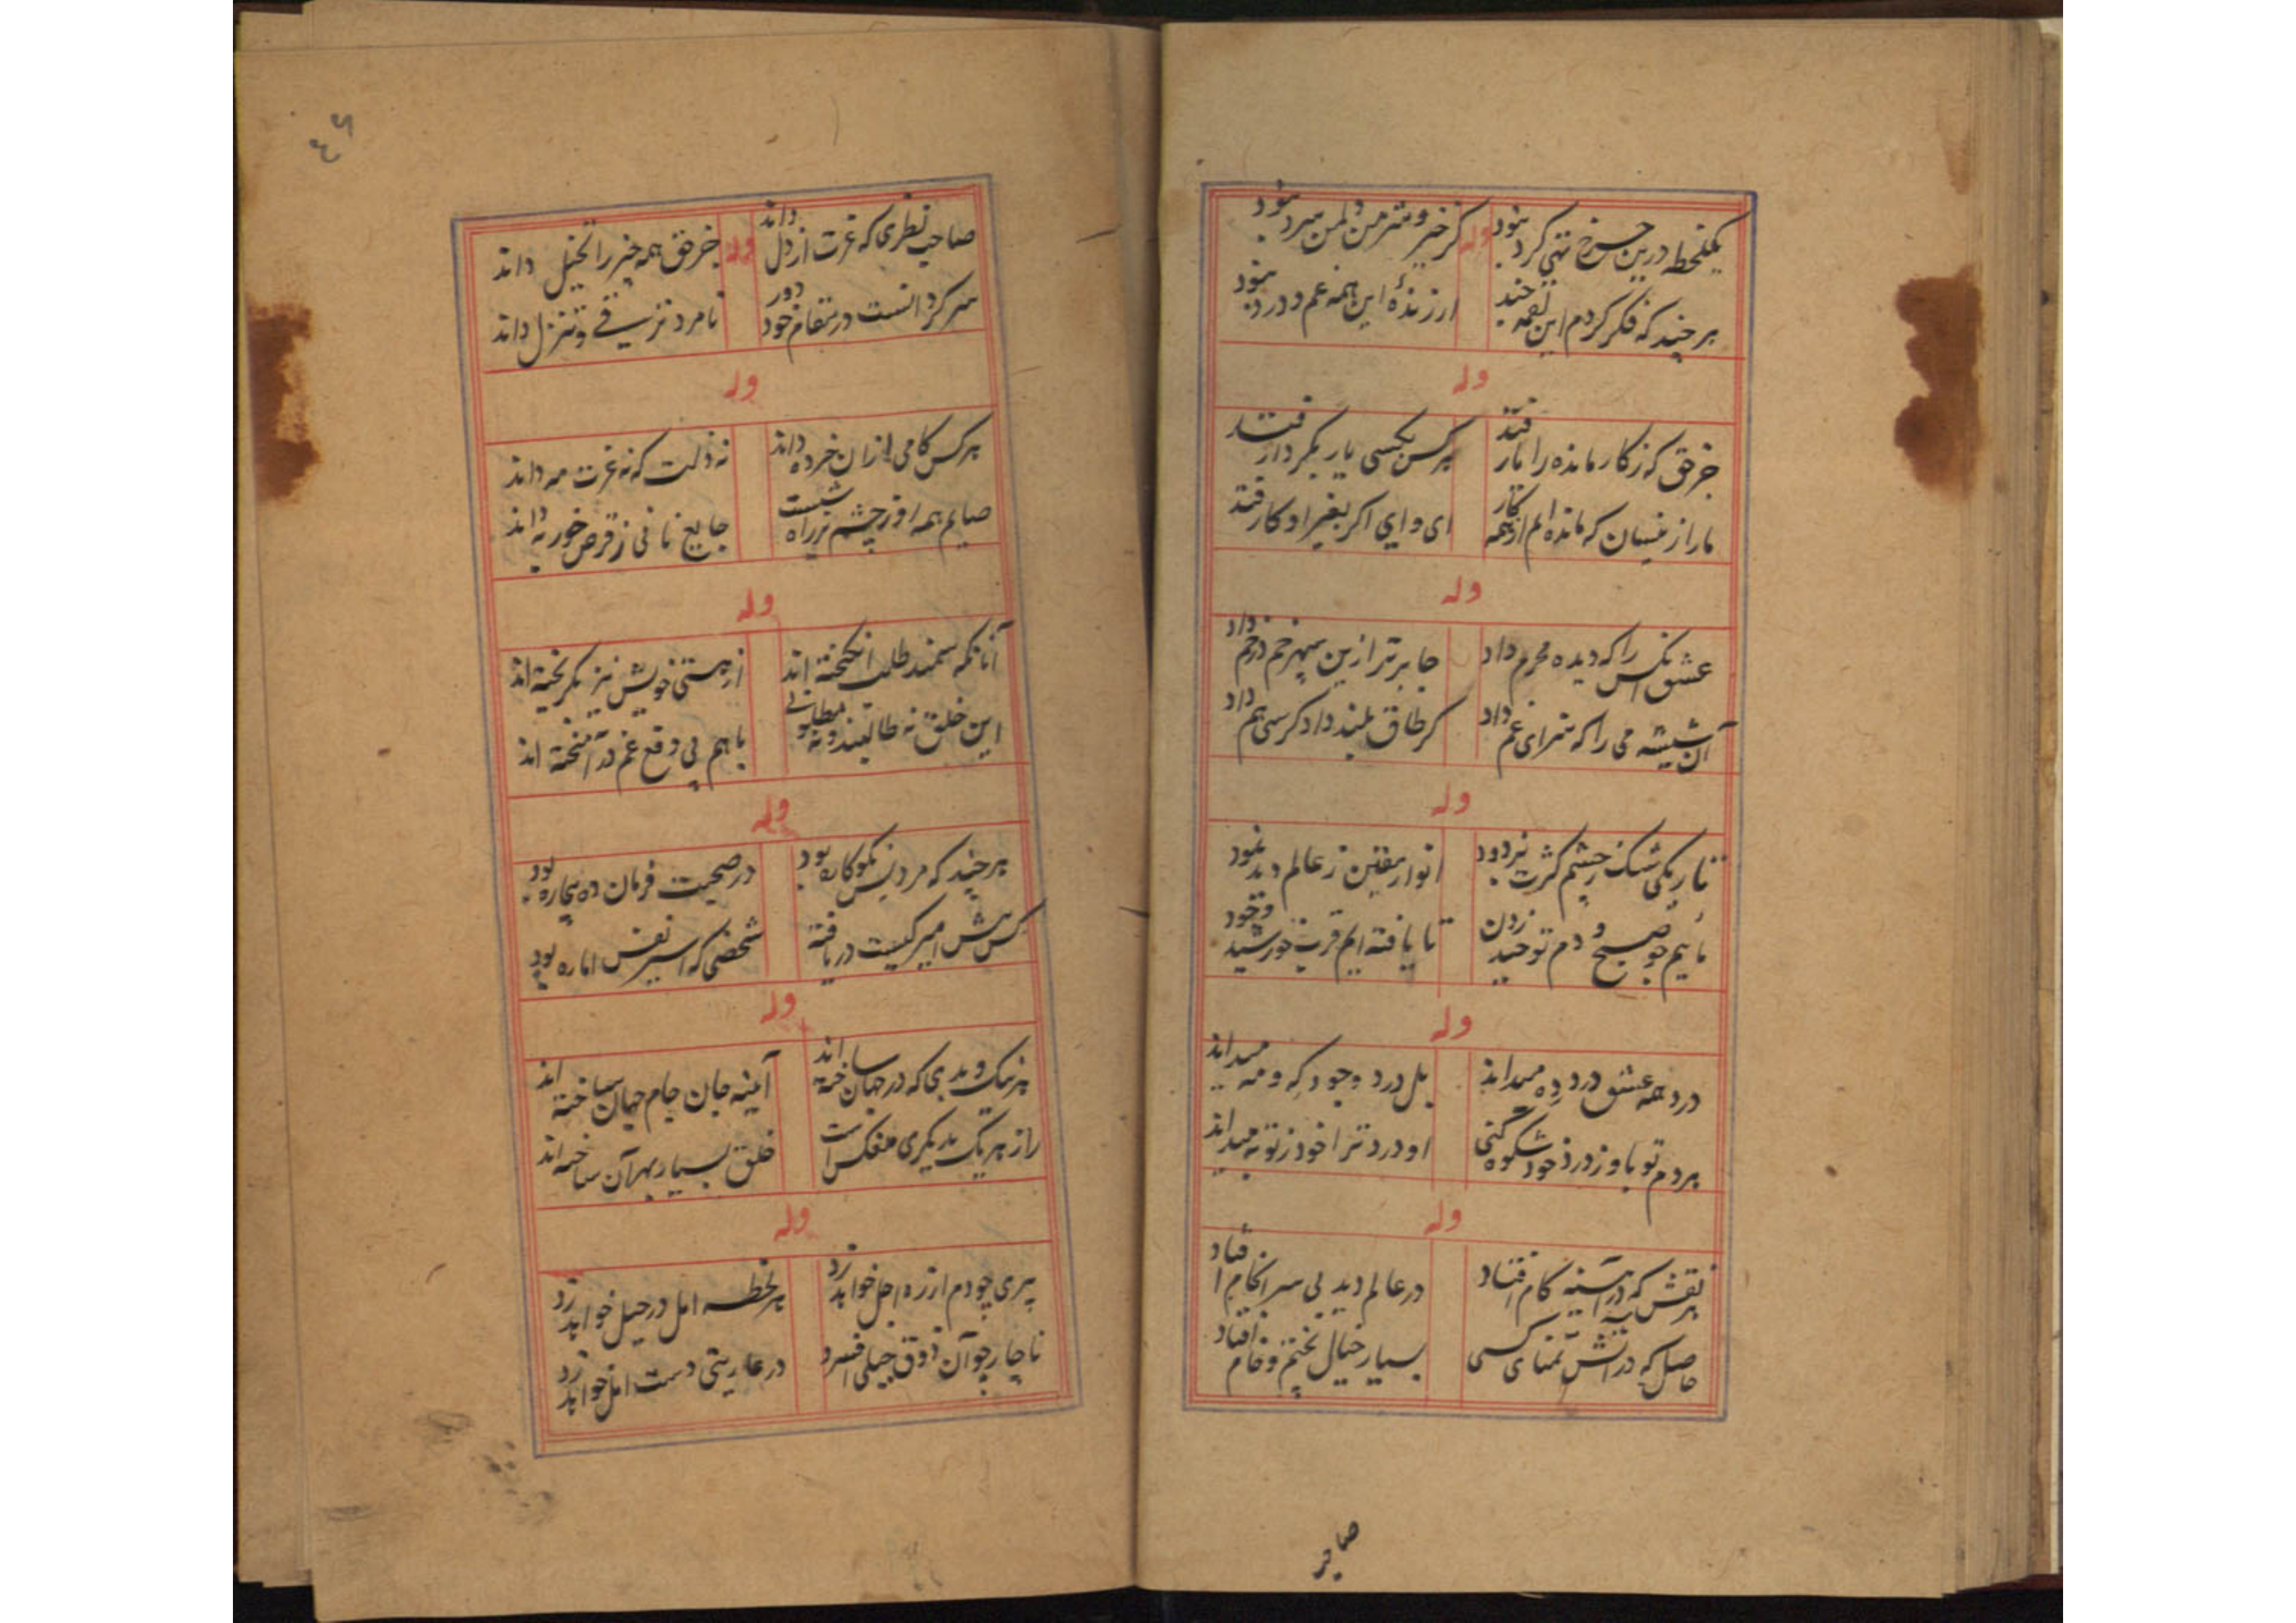 یکلحظه درین چرخ تهی کرد نبود
وله
کز خیر و شر من و لمن سرد نبود
هر چند که فکر کردم این لقمه چند
ارزندهٔ این همه غم و درد نبود
وله
جز حق که ز کار مانده را بار فتد
هر کس بکسی یار بکردار فتد
ما را ز نسیان که مانده ایم از همه کار
ای وای اگر بغیر او کار فتد
وله
عشق آنکس را که دیده محرم داد
جا برتر ازین سپهر خم در خم داد
آن شیشه می را که سزای غم داد
کر طاق بلند داد کرسی هم داد
وله
تاریکی شک ز چشم کثرت بزدود
انوار یقین ز عالم دید نمود
مائیم چو صبح و دم توحید زدن
تا یافته ایم قرب خورشید وجود
وله
درد همه عشق درد ده میداند
بل درد وجود که و مه میداند
هر دم تو باو ز درد خود شکوه کنی
او درد ترا خود ز تو به میداند
وله
هر نقش که در آینه کام افتاد
در عالم دید بی سرانجام افتاد
حاصل که در آتش تمنای کسی
بسیار خیال پختم و خام افتاد
صاحب
٤٦
صاحب نظری که عزت از دل داند
وله
جز حق همه چیز را تخیل داند
سرکردانست در مقام خود دور
نامرد ترقی و تنزل داند
وله
هر کس کامی ازان خرده داند
نه ذلت که نه عزت مه داند
صایم همه روز چشم بر راه شبست
جایع نانی ز قرص خور به داند
وله
آنانکه سمند طلب انکیخته اند
از هستی خویش نیز بکریخته اند
این خلق نه طالبند و نه مطلوبی
با هم پی دفع غم در آمیخته اند
وله
هر چند که مرد بس نکوکاره بود
در صحبت فرمان ده بیچاره بود
کس هش امیر کیست دریافته
شخصی که اسیر نفس اماره بود
وله
هر نیک و بدی که در جهان ساخته اند
آیینه جان جام جهان ساخته اند
راز هر یک بدیکری منعکس است
خلق بسیار بهر آن ساخته اند
وله
پیری چو دم از ره اجل خواهد زد
هر لحظه امل در حیل خواهد زد
ناچار چو آن ذوق جبلی افسرد
در عاریتی دست امل خواهد زد